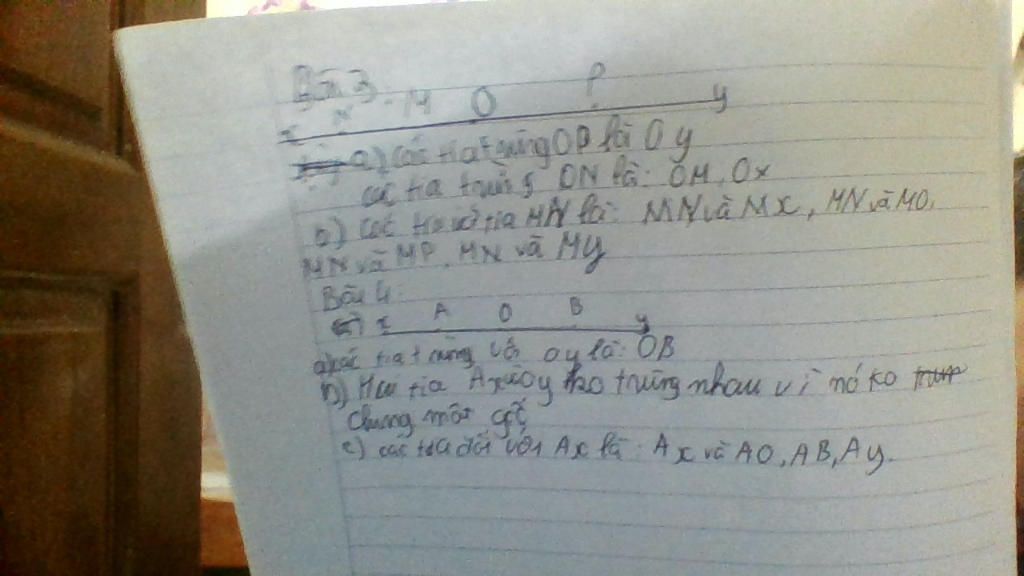 Bài 3
x N M O P y
a) Các tia trùng OP là Oy
các tia trùng ON là: OM, Ox
b) Các tia MN là: MN và Mx, MN và MO,
MN và MP, MN và My
Bài 4:
x A O B y
a) các tia trùng với oy là: OB
b) Hai tia Ax và Oy ko trùng nhau vì nó ko
chung một gốc
c) các tia đối với Ax là: Ax và AO, AB, Ay.